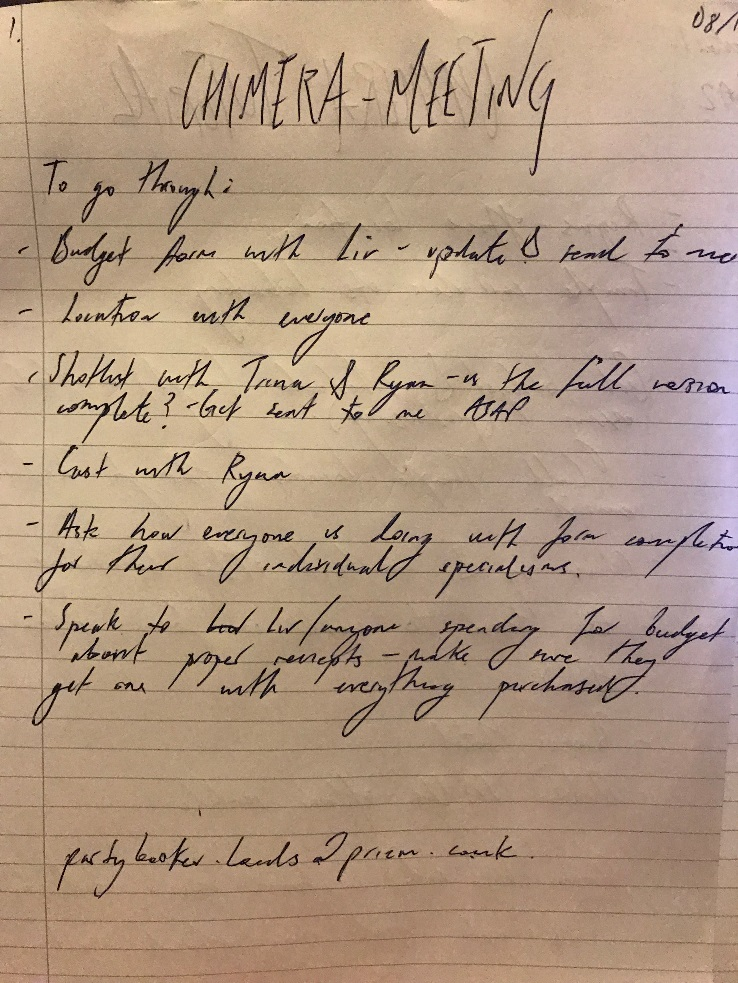 1.
08/1
CHIMERA - MEETING
To go through:
- Budget form with Liv - update & send to me
- Location with everyone
- Shotlist with Tiana & Ryan - is the full version
complete? - Get sent to me ASAP
- Cast with Ryan
- Ask how everyone is doing with form completion
for their individual specialisms.
- Speak to Liv/anyone spending for budget
about proper receipts - make sure they
get one with everything purchased.